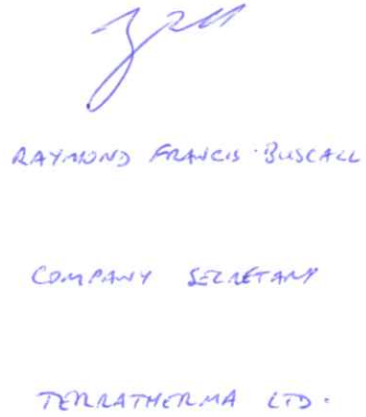 RAYMOND FRANCIS BUSCALL
COMPANY SECRETARY
TERRATHERMA LTD.